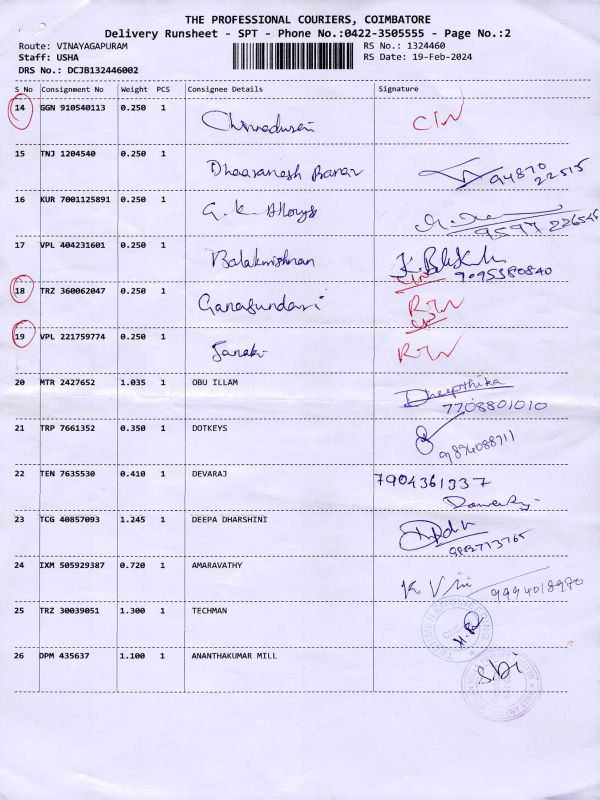 THE PROFESSIONAL COURIERS, COIMBATORE
Delivery Runsheet - SPT - Phone No.:0422-3505555 - Page No.:2
Route: VINAYAGAPURAM RS No.: 1324460
Staff: USHA RS Date: 19-Feb-2024
DRS No.: DCJB132446002
S No Consignment No Weight PCS Consignee Details Signature
14 GGN 910540113 0.250 1
15 TNJ 1204540 0.250 1 94870
22515
16 KUR 7001125891 0.250 1 G.K.
17 VPL 404231601 0.250 1 Balakrishnan
9095380840
18 TRZ 360062047 0.250 1
19 VPL 221759774 0.250 1 Janaki
20 MTR 2427652 1.035 1 OBU ILLAM Deepthika
7708801010
21 TRP 7661352 0.350 1 DOTKEYS
9894088711
22 TEN 7635530 0.410 1 DEVARAJ 7904361337
23 TCG 40857093 1.245 1 DEEPA DHARSHINI
24 IXM 505929387 0.720 1 AMARAVATHY
9994018970
25 TRZ 30039051 1.300 1 TECHMAN
26 DPM 435637 1.100 1 ANANTHAKUMAR MILL